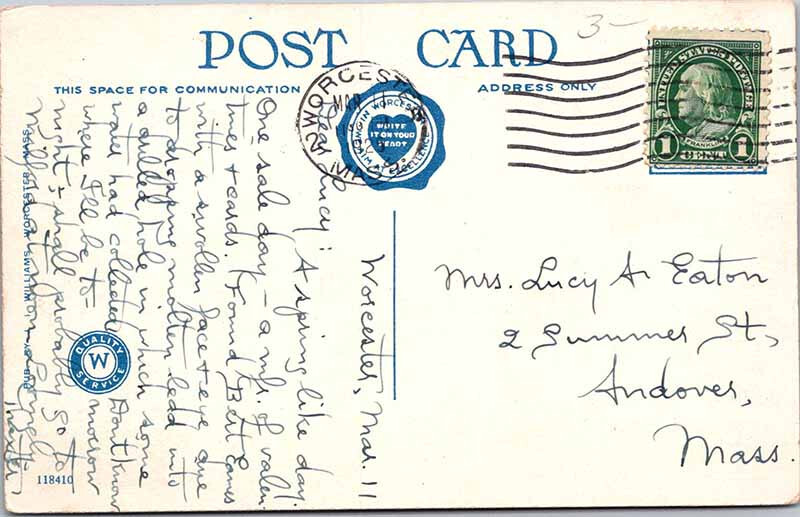 3-
POST CARD
THIS SPACE FOR COMMUNICATION
ADDRESS ONLY
WORCESTER
MAR
MASS.
WIN WORCESTER
WRITE
IT ON YOUR
HEART
UNITED STATES POSTAGE
FRANKLIN
1 CENT 1
Worcester, Mar. 11
Dear Lucy: A spring like day.
One sale day - a mfr. of valen-
tines & cards. Found Bert Eames
with a swollen face & eye due
to dropping molten lead into
a drilled hole in which some
water had collected. Don't know
where I'll be to morrow
night & shall probably go to
Milford
Mrs. Lucy A. Eaton
2 Summer St.,
Andover,
Mass.
PUB. BY J. I. WILLIAMS, WORCESTER, MASS.
QUALITY
W
SERVICE
118410